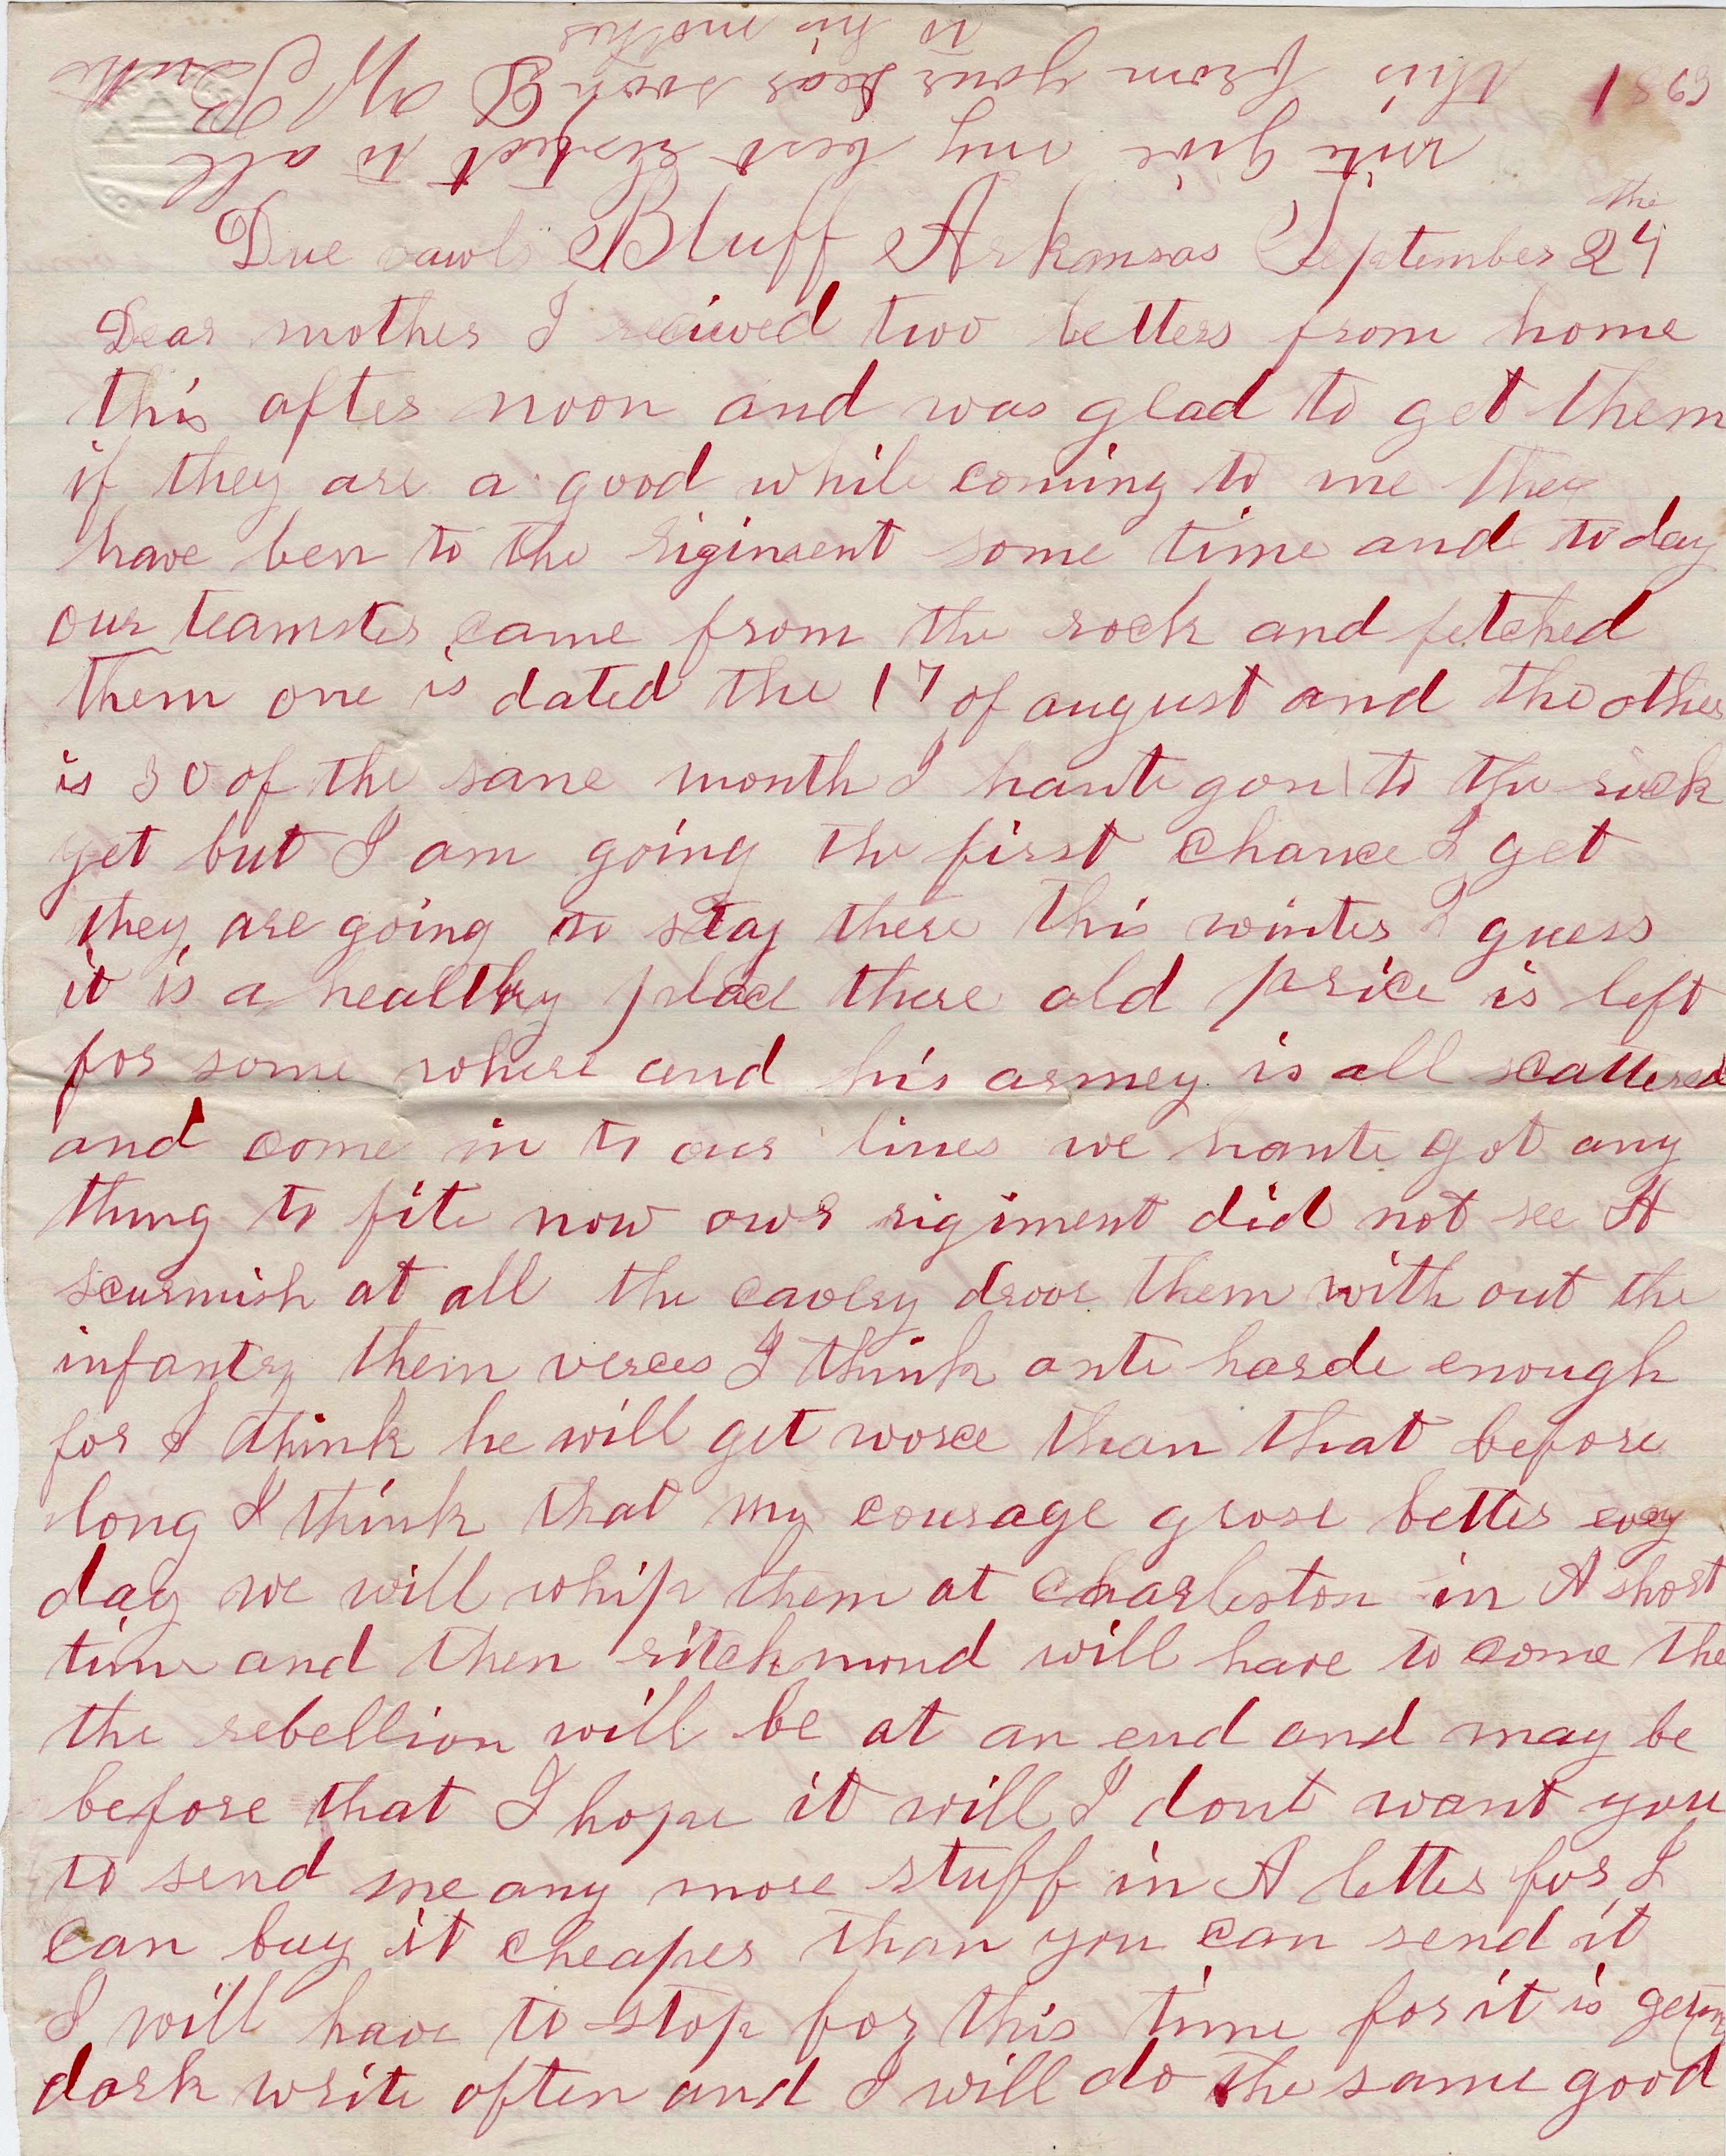 1863
Due vawls Bluff Arkansas September 24 the
Dear mother I reciived two letters from home
this after noon and was glad to get them
if they are a good while coming to me they
have ben to the rigiment some time and today
our teamster came from the rock and fetched
them one is dated the 17 of august and the other
is 30 of the sane month I hante gon to the rock
yet but I am going the first chance I get
they are going to stay there this winter I guess
it is a healthy place there old price is left
for some where and his armey is all scattered
and come in to our lines we hante got any
thing to fite now owr rigiment did not see A
scurmish at all the cavlry drove them with out the
infantry them verces I think ante harde enough
for I think he will get worce than that before
long I think that my courage grose better evry
day we will whip them at charleston in A short
time and then ritchmond will have to come the
the rebellion will be at an end and may be
before that I hope it will I dont want you
to send me any more stuff in A letter for I
can buy it cheaper than you can send it
I will have to stop for this time for it is geting
dark write often and I will do the same good
rite give my best respect to all
this from your dear soon
to his mother